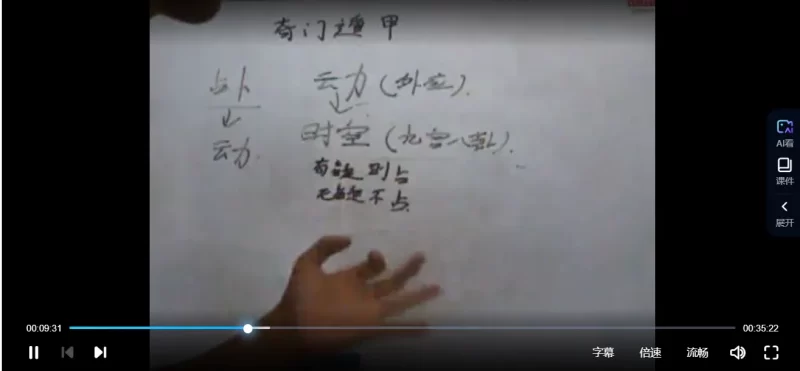 奇门遁甲
占卜 动力(外应).
↓ ↓
动力. 时空(九宫八卦).
有疑则占
无疑不占.
AI看
课件
展开
00:09:31
00:35:22
字幕 倍速 流畅